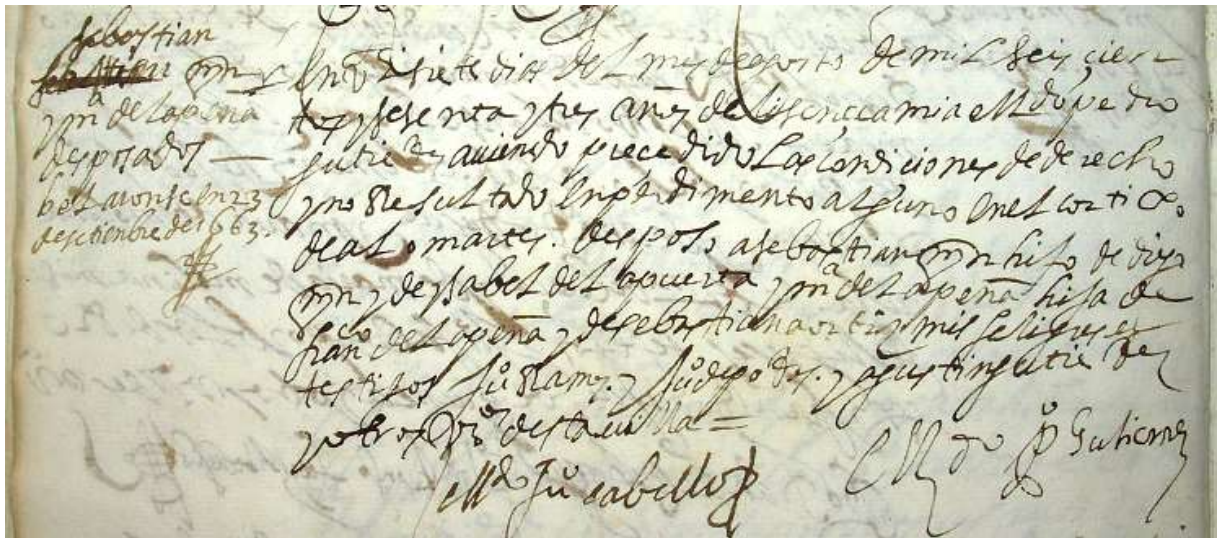 sebastian
mrn y
ma de la peña
desposados
belaronse en 23
de setienbre de 1663.
en diesisiete dias del mes de agosto de mil y seis cien-
tos y sesenta y tres años de lisençia mia el Ldo pedro
gutierrez auiendo precedido las condiciones de derecho
y no Resultado enpedimento alguno en el cortixo
de al martes. desposo a sebastian mrn hijo de diego
mrn y de ysabel de la puerta y ma de la peña hija de
franco de la peña y de sebastiana ortiz mis feligreses
testigos Ju Ramos. y Ju de po y agustin gutierrez
y otros vos desta uilla =
el Ldo Ju cabello
el Ldo Po Gutierrez